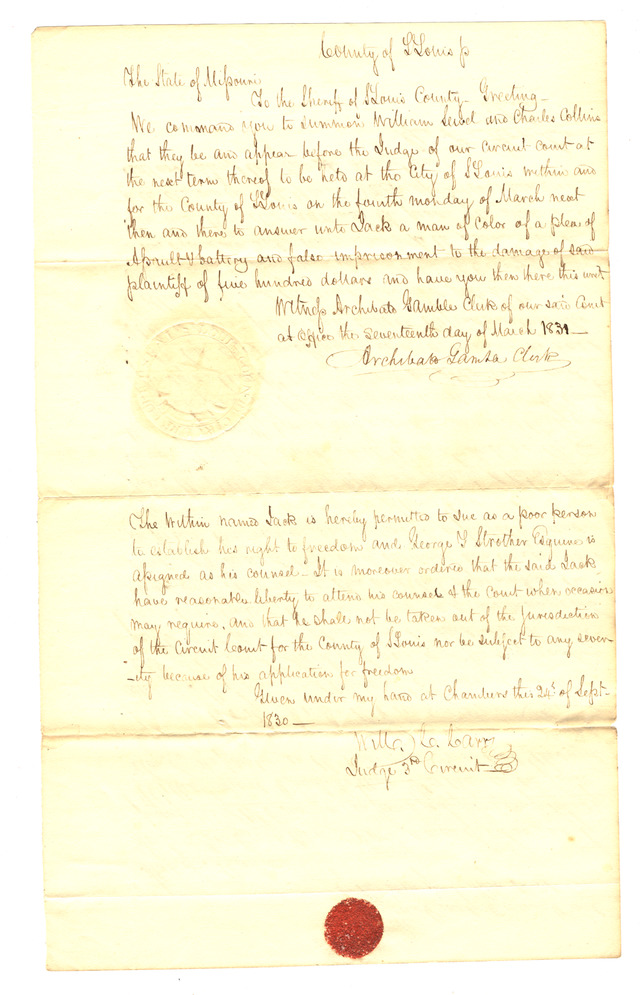 County of St Louis ss
The State of Missouri
To the Sheriff of St Louis County Greeting -
We command you to summon William Sewel and Charles Collins
that they be and appear before the Judge of our circuit court at
the next term thereof to be held at the City of St Louis within and
for the County of St Louis on the fourth monday of March next
then and there to answer unto Jack a man of color of a plea of
Assault & battery and false imprisonment to the damage of said
plaintiff of five hundred dollars and have you then there this writ
Witness Archibald Gamble Clerk of our said Court
at office the seventeenth day of March 1831 -
Archibald Gamble Clerk
The Within named Jack is hereby permitted to sue as a poor person
to establish his right to freedom and George F Strother Esquire is
assigned as his counsel - It is moreover ordered that the said Jack
have reasonable liberty to attend his counsel & the Court when occasion
may require, and that he shall not be taken out of the Jurisdiction
of the Circuit Court for the County of St Louis nor be subject to any sever-
-ity because of his application for freedom
Given under my hand at Chambers this 24th of Sept-
1830 -
Will. C. Carr
Judge 3rd Circuit